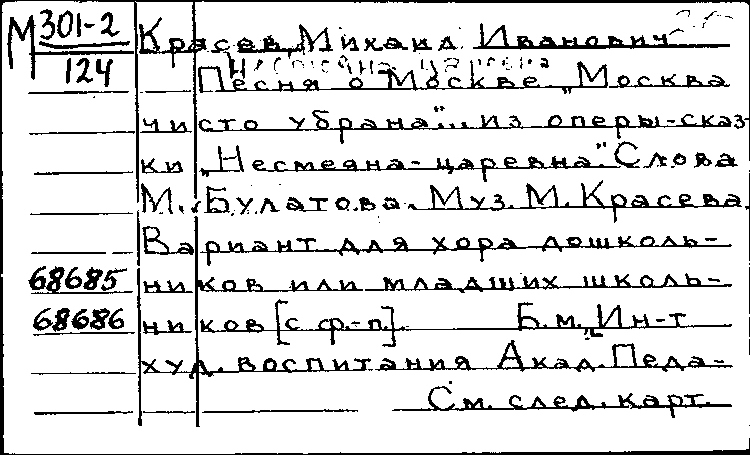 М 301-2
124
Красев, Михаил Иванович
Несмеяна царевна
Песня о Москве „Москва
чисто убрана"... из оперы-сказ-
ки „Несмеяна-царевна". Слова
М. Булатова. Муз. М. Красева.
Вариант для хора дошколь-
68685 ников или младших школь-
68686 ников [с ф.-п.]. Б.м., Ин-т
худ. воспитания Акад. Педа-
См. след. карт.